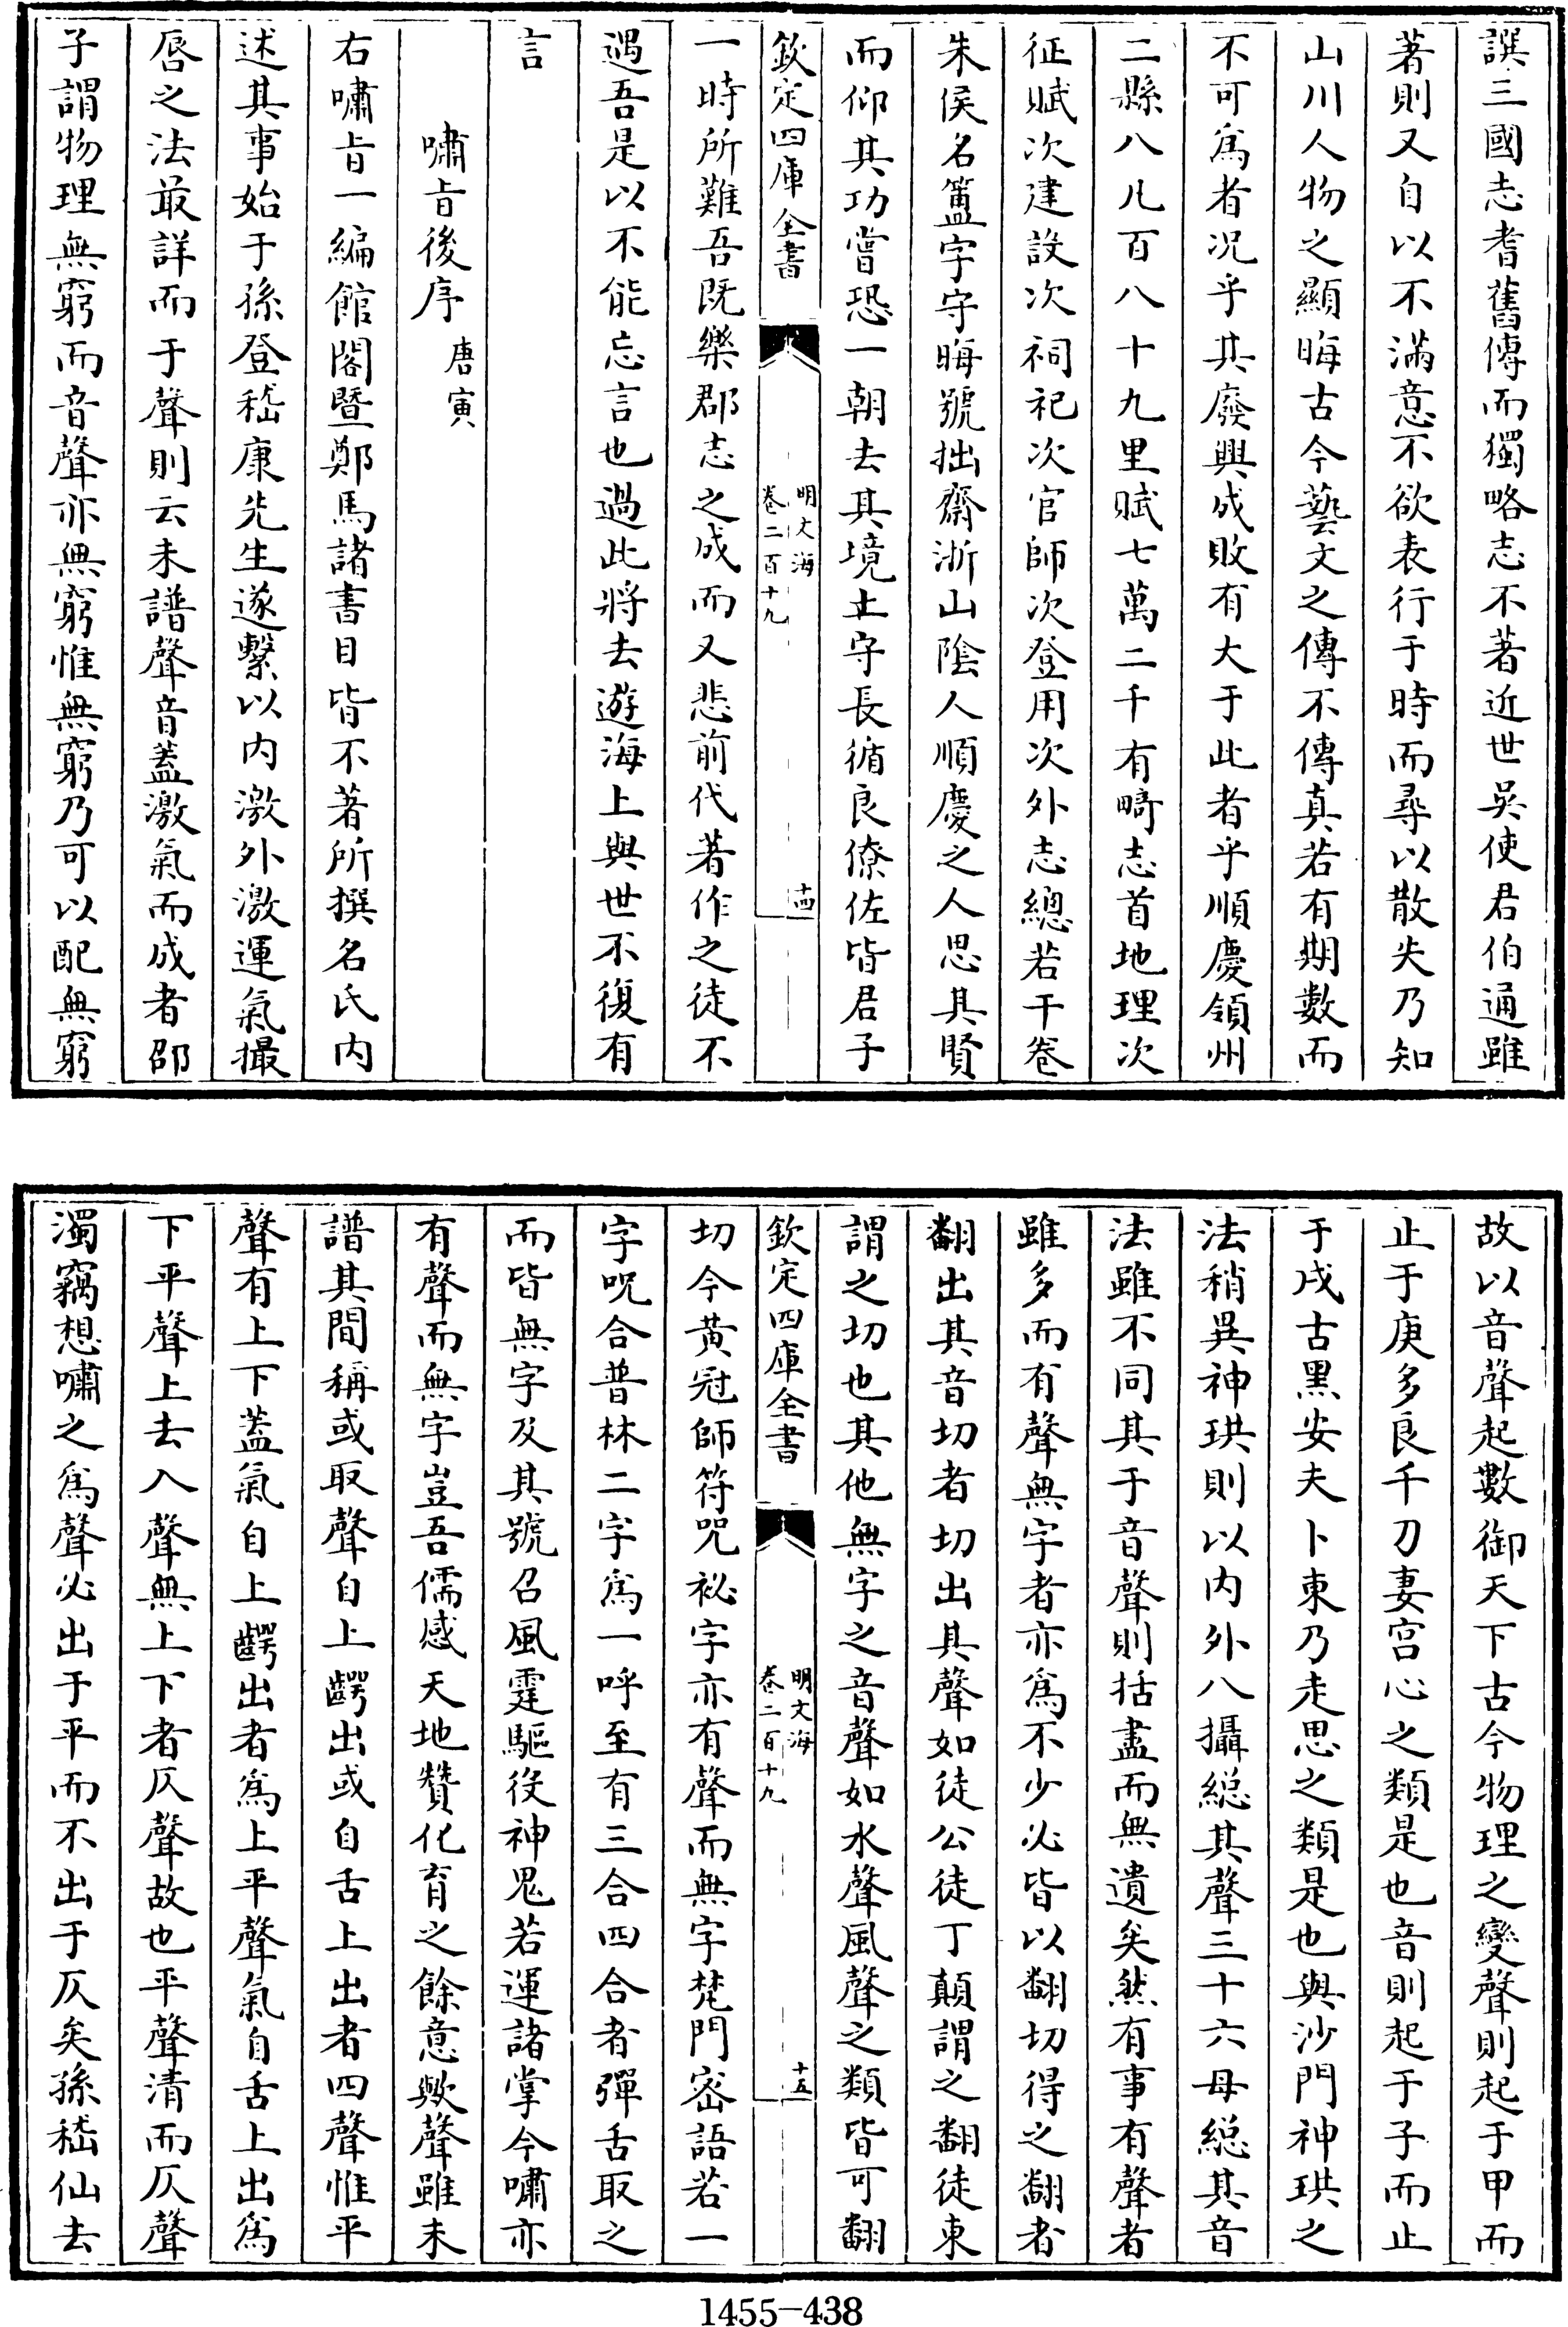 譔三國志耆舊傳而獨略志不著近世吳使君伯通雖
著則又自以不滿意不欲表行于時而尋以散失乃知
山川人物之顯晦古今藝文之傳不傳真若有期數而
不可為者况乎其廢興成敗有大于此者乎順慶領州
二縣八凡百八十九里賦七萬二千有畸志首地理次
征賦次建設次祠祀次官師次登用次外志總若干卷
朱侯名簠字守晦號拙齋浙山陰人順慶之人思其賢
而仰其功嘗恐一朝去其境上守長循良僚佐皆君子
欽定四庫全書
明文海
卷二百十九
十四
一時所難吾既樂郡志之成而又悲前代著作之徒不
遇吾是以不能忘言也過此將去遊海上與世不復有
言
嘯旨後序 唐寅
右嘯旨一編館閣暨鄭馬諸書目皆不著所撰名氏内
述其事始于孫登嵇康先生遂繫以内激外激運氣撮
唇之法最詳而于聲則云未譜聲音蓋激氣而成者邵
子謂物理無窮而音聲亦無窮惟無窮乃可以配無窮
故以音聲起數御天下古今物理之變聲則起于甲而
止于庚多良千刀妻宫心之類是也音則起于子而止
于戌古黑安夫卜東乃走思之類是也與沙門神珙之
法稍異神珙則以内外八攝総其聲三十六母総其音
法雖不同其于音聲則括盡而無遺矣然有事有聲者
雖多而有聲無字者亦為不少必皆以翻切得之翻者
翻出其音切者切出其聲如徒公徒丁顛謂之翻徒東
謂之切也其他無字之音聲如水聲風聲之類皆可翻
欽定四庫全書
明文海
卷二百十九
十五
切今黄冠師符咒祕字亦有聲而無字梵門密語若一
字呪合普林二字為一呼至有三合四合者彈舌取之
而皆無字及其號召風霆驅役神鬼若運諸掌今嘯亦
有聲而無字豈吾儒感天地贊化育之餘意歟聲雖未
譜其間稱或取聲自上齶出或自舌上出者四聲惟平
聲有上下蓋氣自上齶出者為上平聲氣自舌上出為
下平聲上去入聲無上下者仄聲故也平聲清而仄聲
濁竊想嘯之為聲必出于平而不出于仄矣孫嵇仙去
1455-438